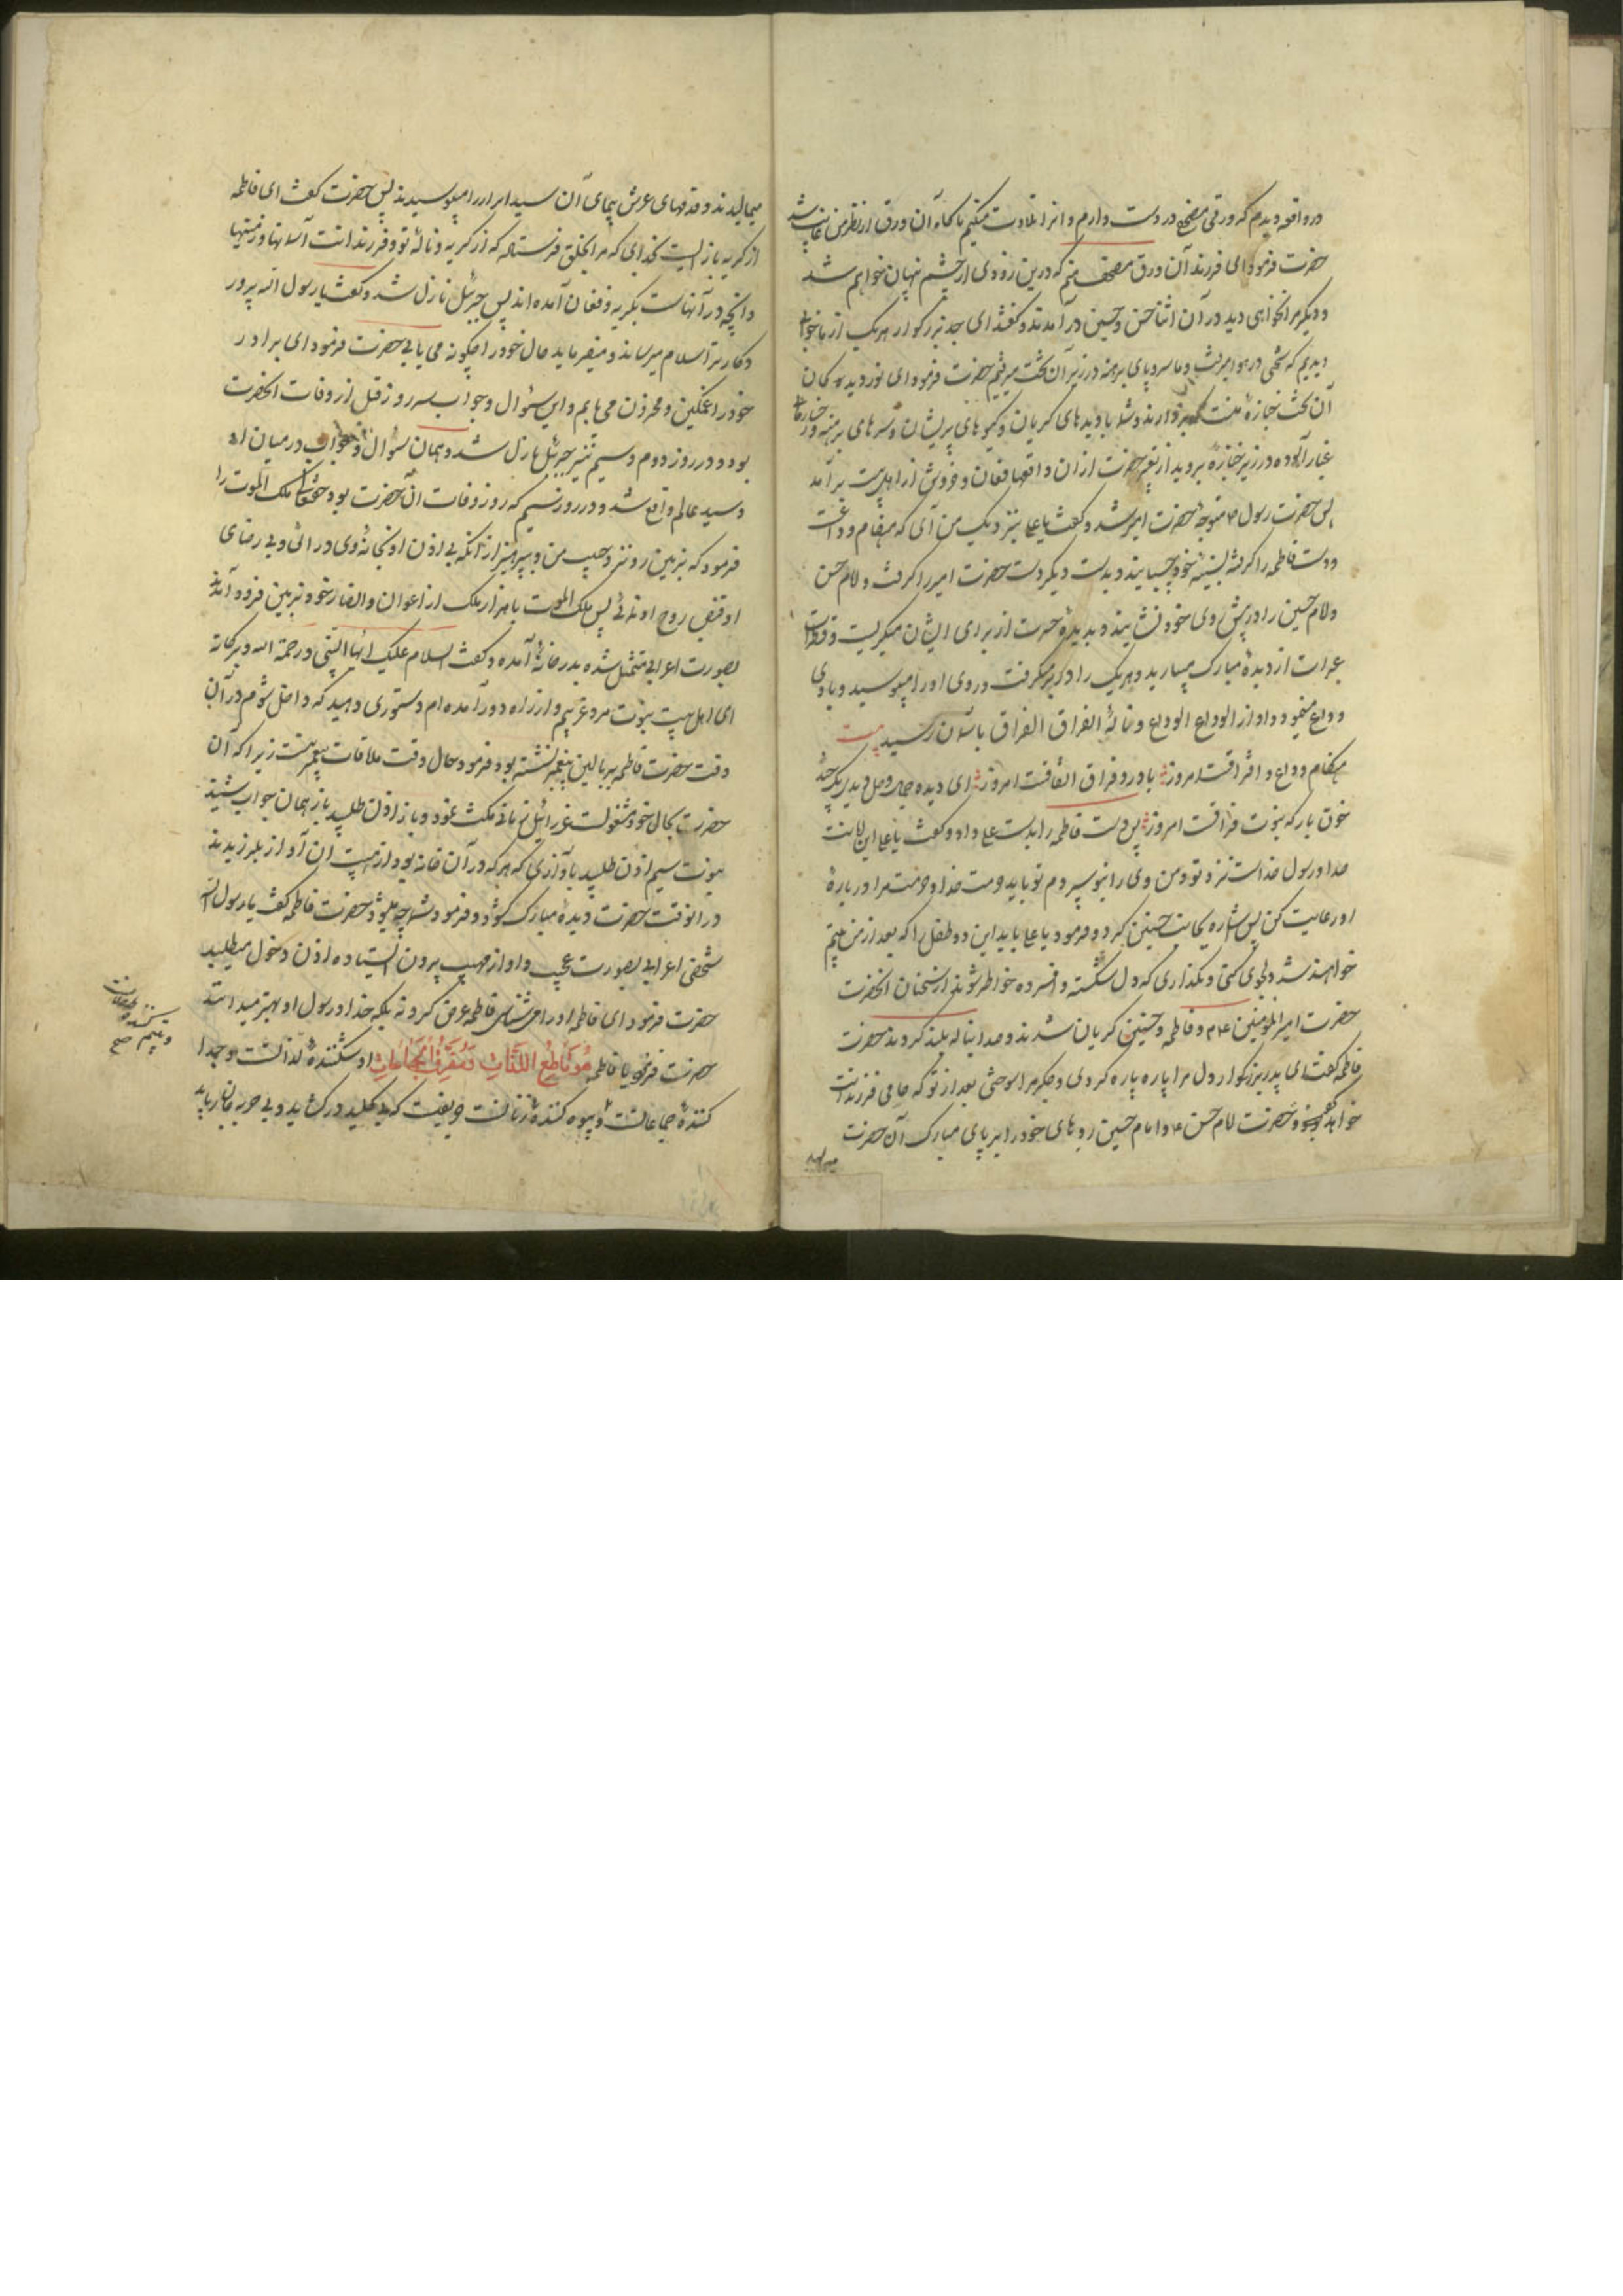 در واقعه دیدم که ورقی مصحف در دست دارم و انرا تلاوت میکنم ناگاه آن ورق از نظر من غایب شد
حضرت فرمود ای فرزند آن ورق مصحف منم که درین زودی از چشم نهان خواهم شد
و دیگر مرا نخواهی دید در آن اثنا حسن و حسین در آمدند و گفتند ای جد بزرگوار هر یک از ما خواب
دیدیم که تختی در هوا میرفت و ما سر و پای برهنه در زیر آن تخت میرفتیم حضرت فرمود ای نور دیده گان
آن تخت جنازهٔ منست که بردارند و شما با دیدهای گریان و گیسوهای پریشان و سرهای برهنه و رخسارهای
غبار آلوده در زیر جنازهٔ بروید از تعبیر حضرت ازان واقعها فغان و خروش از اهلبیت برآمد
پس حضرت رسول ص متوجه حضرت امیر شد و گفت یا علی نزدیک من آی که هنگام وداعست
و دست فاطمه را گرفته بسینهٔ خود چسبانید و بدست دیگر دست حضرت امیر را گرفت و امام حسن
و امام حسین را در پیش روی خود نشانید و بدیدهٔ حسرت از برای ایشان میگریست و قطرات
عبرات از دیدهٔ مبارک میبارید و هر یک را در بر میگرفت و روی او را میبوسید و با وی
وداع مینمود و آواز الوداع الوداع و نالهٔ الفراق الفراق باسمان رسید بیت
هنگام وداع و افتراقست امروز با درد فراق اتفاقست امروز ای دیده جمال وصل دیدی یکچند
خون بار که نوبت فراقست امروز پس دست فاطمه را بدست علی داد و گفت یا علی این امانت
خدا و رسول خداست نزد تو و من وی را بتو سپردم تو باید حرمت خدا و حرمت مرا در بارهٔ
او رعایت کن پس اشاره بجانب حسنین کرد و فرمود یا علی باید این دو طفل را که بعد از من یتیم
خواهند شد دلجوی کنی و نگذاری که دل شکسته و افسرده خاطر شوند از سخنان آنحضرت
حضرت امیر المومنین ع و فاطمه و حسنین گریان شدند و صدا بناله بلند کردند حضرت
فاطمه گفت ای پدر بزرگوار دل مرا پاره پاره کردی و جگر مرا سوختی بعد از تو که حامی فرزندانت
خواهد بود و حضرت امام حسن ع و امام حسین روهای خود را بر پای مبارک آن حضرت
میمالیدند و قدمهای عرش پیمای آن سید ابرار را میبوسیدند پس حضرت گفت ای فاطمه
از گریه باز ایست بخدای که مرا بخلق فرستاده که از گریه و نالهٔ تو و فرزندانت آسمانها و زمینها
و آنچه در آنهاست بگریه و فغان آمده اند پس جبرئیل نازل شد و گفت یا رسول الله پرور
دگار ترا سلام میرساند و میفرماید حال خود را چگونه می یابی حضرت فرمود ای برادر
خود را غمگین و محزون می یابم و این سئوال و جواب سه روز قبل از وفات آنحضرت
بود و در روز دوم و سیم نیز جبرئیل نازل شد و همان سوال و جواب در میان او
و سید عالم واقع شد و در روز سیم که روز وفات آن حضرت بود حقتعالی ملک الموت را
فرمود که بزمین رو نزد حبیب من و بپرهیز از آنکه بی اذن او بخانهٔ وی در ائی و بی رضای
او قبض روح او نمائی پس ملک الموت با هزار ملک از اعوان و انصار خود بزمین فرود آمد
بصورت اعرابی متمثل شده بدر خانه آمده و گفت السلام علیک ایها النبی و رحمة الله و برکاته
ای اهل بیت نبوت مرد غریبم و از راه دور آمده ام دستوری دهید که داخل شوم در آن
وقت حضرت فاطمه بر بالین پیغمبر نشسته بود فرمود حال وقت ملاقات پیغمبر نیست زیرا که آن
حضرت بحال خود مشغولست عزرائیل زمانی مکث نمود و باز اذن طلبید باز همان جواب شنید
نوبت سیم اذن طلبید بآوازی که هر که در آن خانه بود از هیبت آن آواز بلرزیدند
در انوقت حضرت دیدهٔ مبارک گشود و فرمود شما چه میشود حضرت فاطمه گفت یا رسول الله
شخصی اعرابی بصورت عجیب و اواز مهیب بیرون ایستاده اذن دخول میطلبد
حضرت فرمود ای فاطمه او را می شناسی فاطمه عرض کرد نه بلکه خدا و رسول او بهتر میدانند
حضرت فرمود یا فاطمه هُوَ قَاطِعُ اللَّذَّاتِ وَ مُفَرِّقُ الْجَمَاعَاتِ او شکنندهٔ لذاتست و جدا
کنندهٔ جماعاتست و بیوه کنندهٔ زنانست حریفیست که بی کلید در گشاید و بی حربه جان رباید